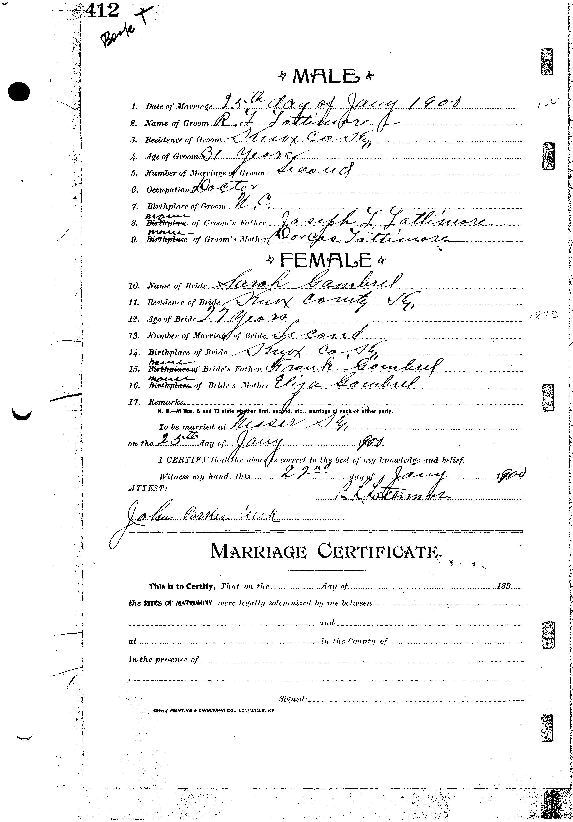 412
Book T
MALE
1. Date of Marriage 25th day of Jany 1900
2. Name of Groom R L Lattimore
3. Residence of Groom Knox Co Ky,
4. Age of Groom 31 Years
5. Number of Marriage of Groom Second
6. Occupation Doctor
7. Birthplace of Groom N. C.
8. Birthplace name of Groom's Father Joseph L Lattimore
9. Birthplace name of Groom's Mother Lattimore
FEMALE
10. Name of Bride Sarah Gambrel
11. Residence of Bride Knox County Ky,
12. Age of Bride 27 Years
13. Number of Marriage of Bride Second
14. Birthplace of Bride Knox Co Ky,
15. Birthplace name of Bride's Father Frank Gambrel
16. Birthplace name of Bride's Mother Eliza Gambrel
17. Remarks
N. B.—At Nos. 5 and 13 state whether first, second, etc., marriage of each of either party.
To be married at Messer Ky,
on the 25th day of Jany 1900
I CERTIFY that the above is correct to the best of my knowledge and belief.
Witness my hand, this 22nd day of Jany 1900
R L Lattimore
ATTEST:
John Clerk
MARRIAGE CERTIFICATE.
This is to Certify, That on the day of 189
the RITES OF MATRIMONY were legally solemnized by me between
and
at in the County of
in the presence of
Signed:
PRINTING & ENGRAVING CO., LOUISVILLE, KY